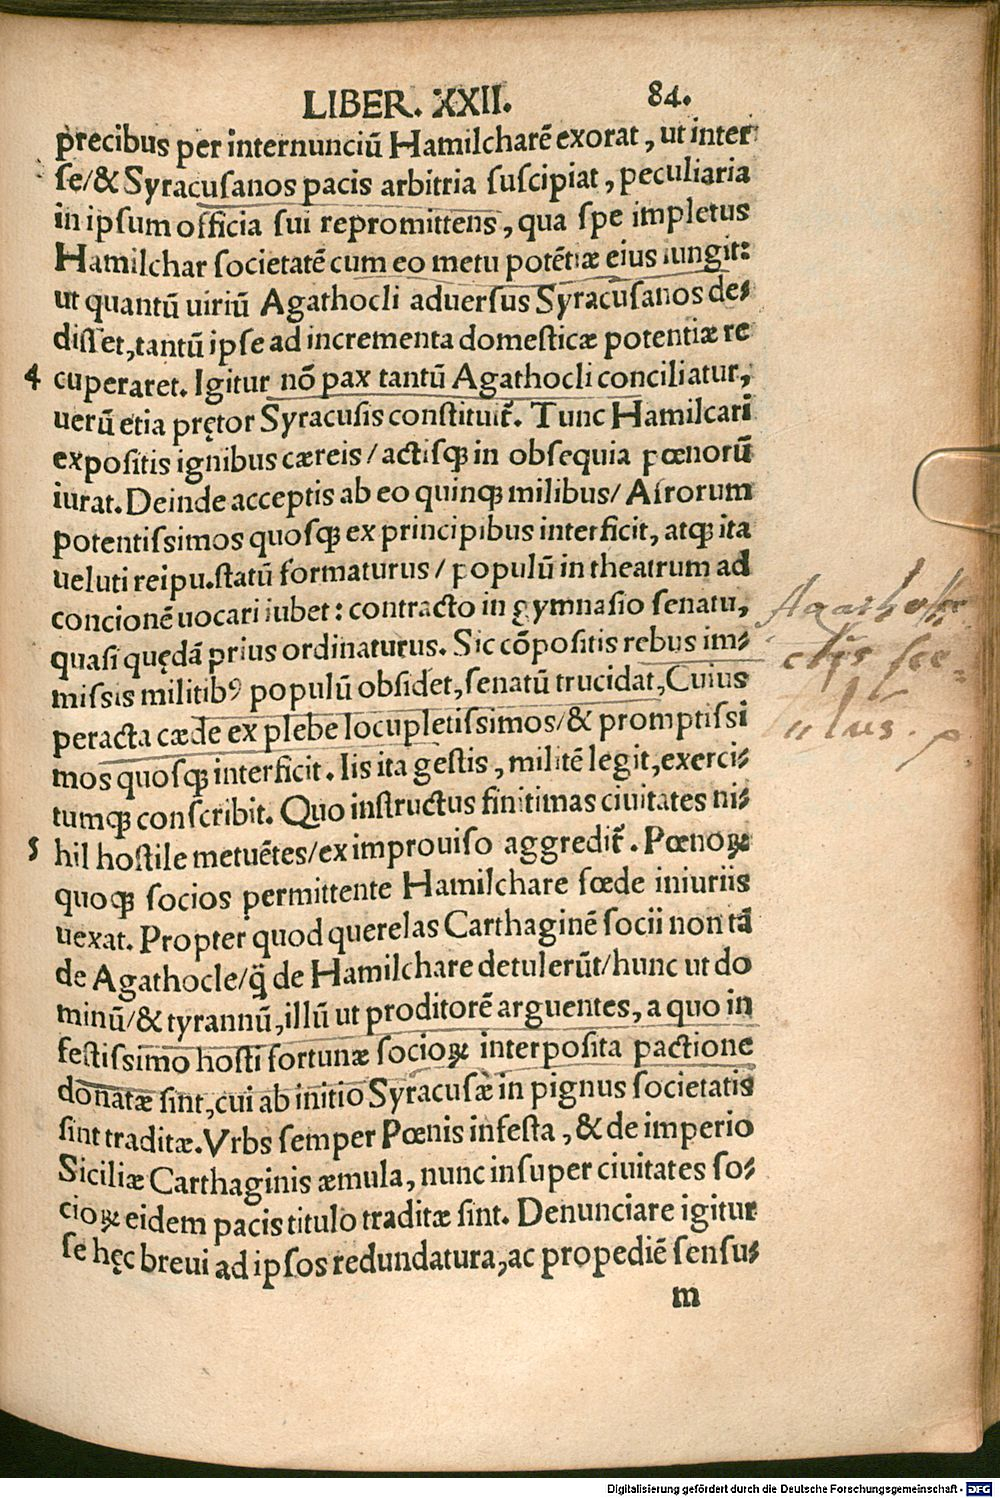 LIBER. XXII. 84.
precibus per internunciū Hamilcharē exorat, ut inter
se/& Syracusanos pacis arbitria suscipiat, peculiaria
in ipsum officia sui repromittens, qua spe impletus
Hamilchar societatē cum eo metu potētiæ eius iungit:
ut quantū uiriū Agathocli aduersus Syracusanos de-
disset, tantū ipse ad incrementa domesticæ potentiæ re
4 cuperaret. Igitur nō pax tantū Agathocli conciliatur,
uerū etia prętor Syracusis constituit᷑. Tunc Hamilcari
expositis ignibus cæreis/actisq́; in obsequia pœnorū
iurat. Deinde acceptis ab eo quinq́; milibus/ Afrorum
potentissimos quosq́; ex principibus interficit, atq́; ita
ueluti reipu. statū formaturus/populū in theatrum ad
concionē uocari iubet: contracto in gymnasio senatu,
quasi quędā prius ordinaturus. Sic cōpositis rebus im-
missis militibꝰ populū obsidet, senatū trucidat, Cuius
peracta cæde ex plebe locupletissimos/& promptissi
mos quosq́; interficit. Iis ita gestis, militē legit, exerci-
tumq́; conscribit. Quo instructus finitimas ciuitates ni-
5 hil hostile metuētes/ex improuiso aggredit᷑. Pœnoꝝ
quoq́; socios permittente Hamilchare fœde iniuriis
uexat. Propter quod querelas Carthaginē socii non tā
de Agathocle/q̈̄ de Hamilchare detulerūt/hunc ut do
minū/& tyrannū, illū ut proditorē arguentes, a quo in
festissimo hosti fortunæ socioꝝ interposita pactione
donatæ sint, cui ab initio Syracusæ in pignus societatis
sint traditæ. Vrbs semper Pœnis infesta, & de imperio
Siciliæ Carthaginis æmula, nunc insuper ciuitates so-
cioꝝ eidem pacis titulo traditæ sint. Denunciare igitur
se hęc breui ad ipsos redundatura, ac propediē sensu-
m
Agathocl
sce-
lus.
Digitalisierung gefördert durch die Deutsche Forschungsgemeinschaft - DFG